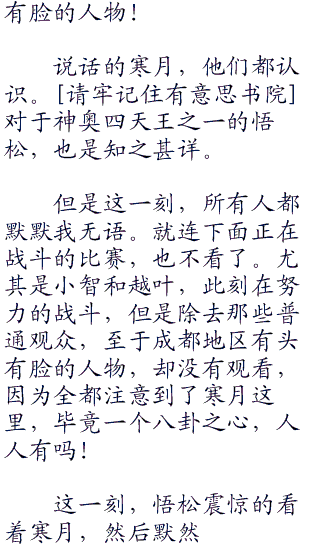 有脸的人物！
说话的寒月，他们都认
识。[请牢记住有意思书院]
对于神奥四天王之一的悟
松，也是知之甚详。
但是这一刻，所有人都
默默我无语。就连下面正在
战斗的比赛，也不看了。尤
其是小智和越叶，此刻在努
力的战斗，但是除去那些普
通观众，至于成都地区有头
有脸的人物，却没有观看，
因为全都注意到了寒月这
里，毕竟一个八卦之心，人
人有吗！
这一刻，悟松震惊的看
着寒月，然后默然